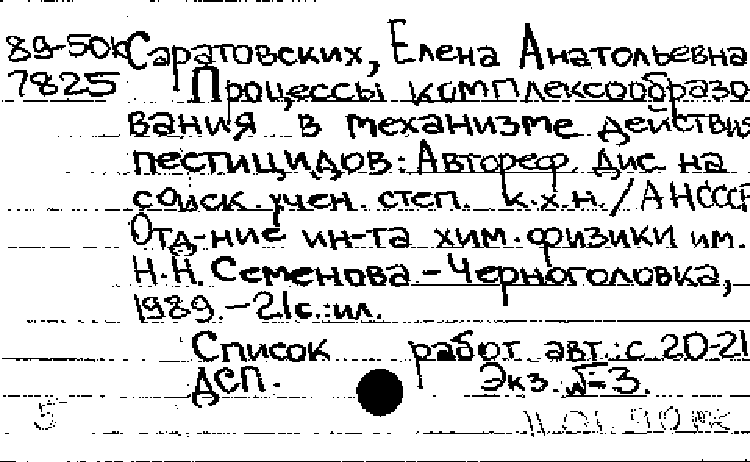 89-50к Саратовских, Елена Анатольевна
7825 Процессы комплексообразо
вания в механизме действия
пестицидов: Автореф. дис. на
соиск. учен. степ. к.х.н. / АН СССР
Отд-ние ин-та хим. физики им.
Н.Н. Семенова. - Черноголовка,
1989. - 21 с.: ил.
Список работ авт.: с. 20-21
ДСП. Экз. №3.
5 11.01.90